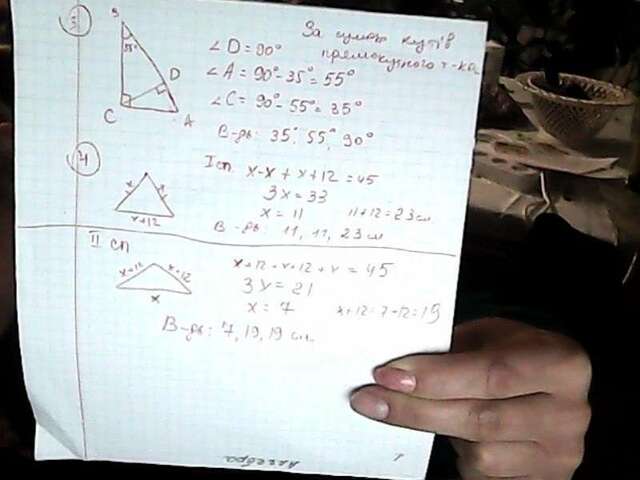 3
За сумою кутів
прямокутного т-ка
B
35°
D
C
A
∠D = 90°
∠A = 90° - 35° = 55°
∠C = 90° - 55° = 35°
В-дь: 35°, 55°, 90°
4
I сп
x
x
x+12
x + x + x + 12 = 45
3x = 33
x = 11
11+12 = 23 см
В-дь: 11, 11, 23 см
II сп
x+12
x+12
x
x + 12 + x + 12 + x = 45
3x = 21
x = 7
x+12 = 7+12 = 19
В-дь: 7, 19, 19 см.
Алгебра